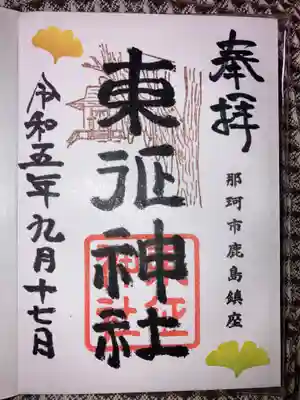 奉拝
那珂市鹿島鎮座
東征神社
令和五年九月十七日